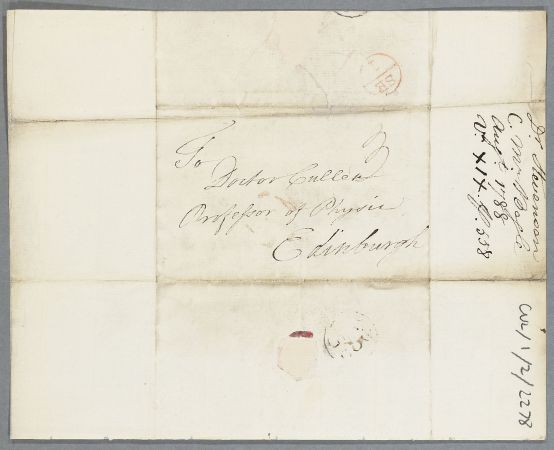 3
To
Doctor Cullen
Professor of Physic
Edinburgh
Dr Stevenson
C. Mr
Augt 1788
V. XIX. p. 558
CUL/1/2/2278